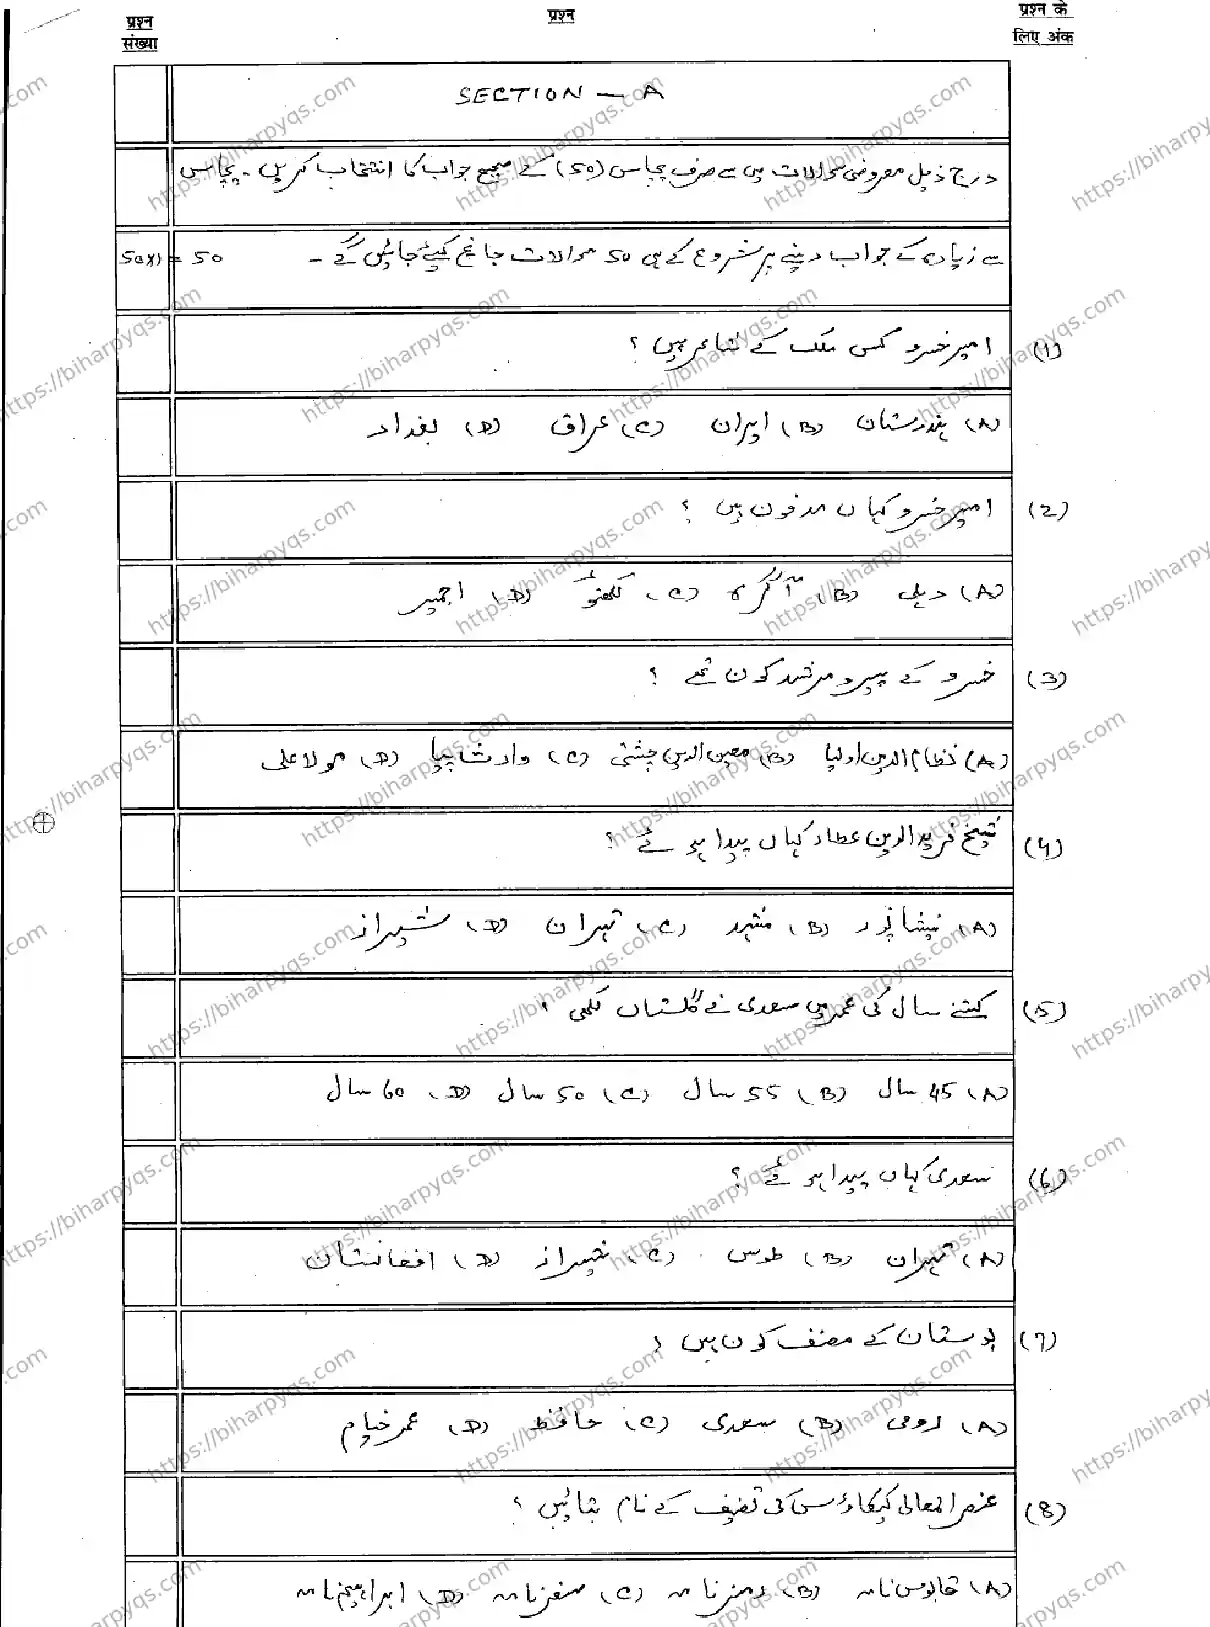 प्रश्न संख्या
प्रश्न
प्रश्न के लिए अंक
SECTION - A
درج ذیل معروضی سوالات میں سے صرف پچاس (50) کے صحیح جواب کا انتخاب کریں - پچاس
سے زیادہ کے جواب دینے پر شروع کے ہی 50 سوالات جانچ کیئے جائیں گے - 50x1 = 50
(1) امیر خسرو کس ملک کے شاعر ہیں ؟
(A) ہندوستان (B) ایران (C) عراق (D) بغداد
(2) امیر خسرو کہاں مدفون ہیں ؟
(A) دہلی (B) آگرہ (C) لکھنؤ (D) اجمیر
(3) خسرو کے پیر و مرشد کون تھے ؟
(A) نظام الدین اولیا (B) معین الدین چشتی (C) وارث پیا (D) مولا علی
(4) شیخ فرید الدین عطار کہاں پیدا ہوئے ؟
(A) نیشاپور (B) مشہد (C) تہران (D) شیراز
(5) کتنے سال کی عمر میں سعدی نے گلستاں لکھی ؟
(A) 45 سال (B) 55 سال (C) 50 سال (D) 60 سال
(6) سعدی کہاں پیدا ہوئے ؟
(A) تہران (B) طوس (C) شیراز (D) افغانستان
(7) بوستان کے مصنف کون ہیں ؟
(A) رومی (B) سعدی (C) حافظ (D) عمر خیام
(8) عنصر المعالی کیکاؤس کی تصنیف کے نام بتائیں ؟
(A) قابوس نامہ (B) (C) سفرنامہ (D) ابراہیم نامہ
https://biharpyqs.com